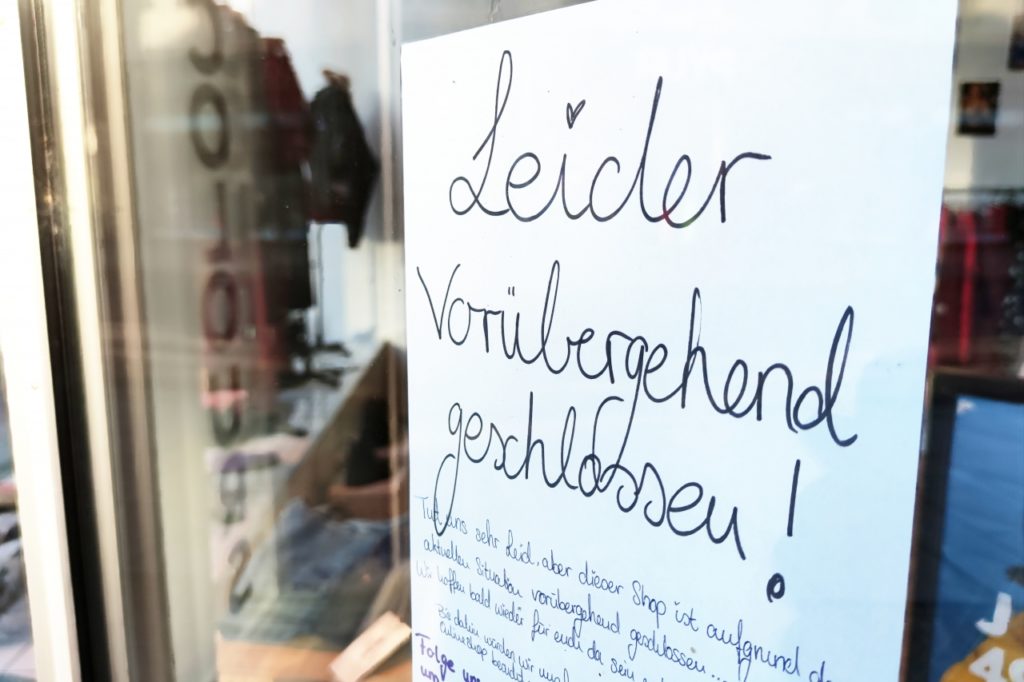 Leider
Vorübergehend
geschlossen!
Tut uns sehr Leid, aber dieser Shop ist aufgrund
aktuellen Situation vorübergehend geschlossen...
Wir hoffen bald wieder für euch da sein
Bis dahin würden wir uns
Onlineshop
Folge